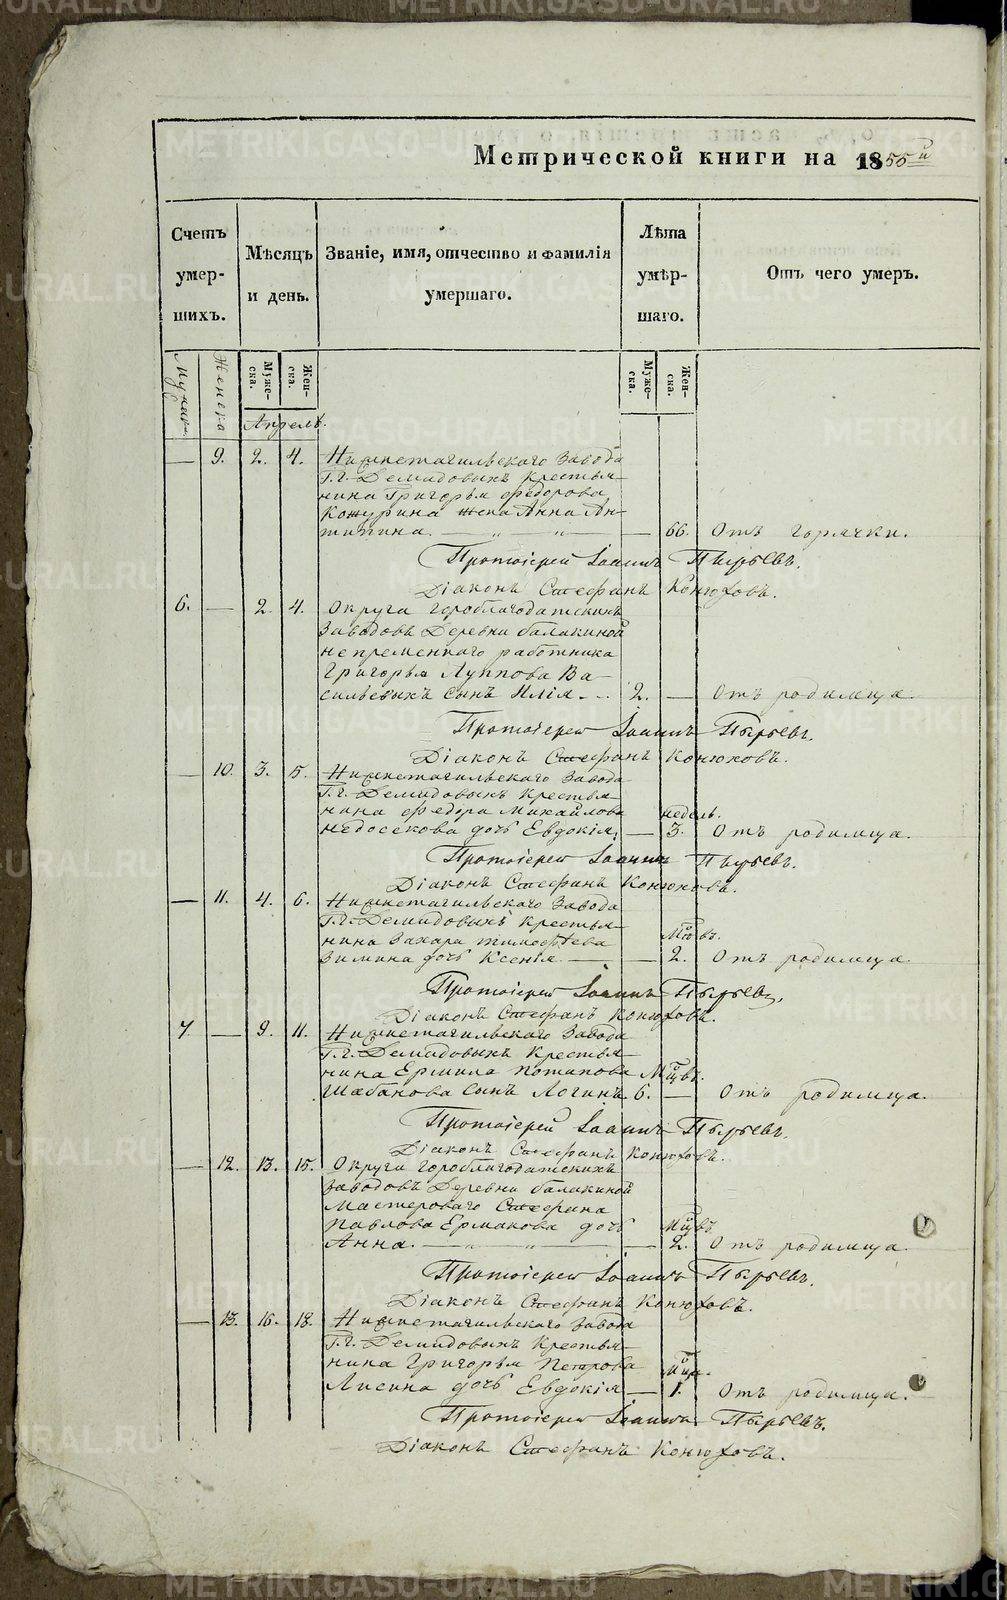 METRIKI.GASO-URAL.RU
Метрической книги на 1855й
Счетъ умер-шихъ.
Мѣсяцъ и день.
Званіе, имя, отчество и фамилія умершаго.
Лѣта умѣр-шаго.
Отъ чего умеръ.
Мужск.
Женска
Муже-ска.
Жен-ска.
Муже-ска.
Жен-ска.
Апрель.
— 9. 2. 4. Нижнетагильскаго Завода
Г.г. Демидовыхъ крестья-
нина Григорья Федорова
Кожурина жена Анна Ан-
типина. — „ — „ — — 66. Отъ горячки.
Протоіерей Іоаннъ Пырьевъ.
Діаконъ Стефанъ Конюховъ.
6. — 2. 4. Округа Гороблагодатскихъ
Заводовъ Деревни Балакиной
непременнаго работника
Григорья Луппова Ва-
сильевыхъ сынъ Илія. 2. — Отъ родимца.
Протоіерей Іоаннъ Пырьевъ.
Діаконъ Стефанъ Конюховъ.
— 10. 3. 5. Нижнетагильскаго Завода
Г.г. Демидовыхъ крестья-
нина Федора Михайлова недель.
Недосекова дочь Евдокія. — 3. Отъ родимца.
Протоіерей Іоаннъ Пырьевъ.
Діаконъ Стефанъ Конюховъ.
— 11. 4. 6. Нижнетагильскаго Завода
Г.г. Демидовыхъ крестья-
нина Захара Тимофѣева Мцѣвъ.
Зимина дочь Ксенія. — — 2. Отъ родимца.
Протоіерей Іоаннъ Пырьевъ.
Діаконъ Стефанъ Конюховъ.
7. — 9. 11. Нижнетагильскаго Завода
Г.г. Демидовыхъ крестья-
нина Ермила Потапова Мцвъ.
Шабанова сынъ Логинъ. 6. — Отъ родимца.
Протоіерей Іоаннъ Пырьевъ.
Діаконъ Стефанъ Конюховъ.
— 12. 13. 15. Округи Гороблагодатскихъ
Заводовъ Деревни Балакиной
Мастероваго Стефана
Павлова Ермакова дочь Мцвъ
Анна. — „ — „ — — 2. Отъ родимца.
Протоіерей Іоаннъ Пырьевъ.
Діаконъ Стефанъ Конюховъ.
— 13. 16. 18. Нижнетагильскаго Завода
Г.г. Демидовыхъ крестья-
нина Григорья Петрова
Лисина дочь Евдокія — 1. Отъ родимца.
Протоіерей Іоаннъ Пырьевъ.
Діаконъ Стефанъ Конюховъ.